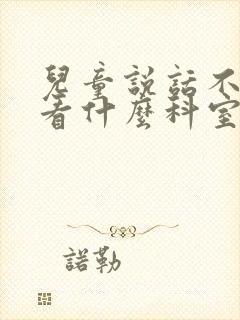 兒童説話不
看什麼科室
諾勒